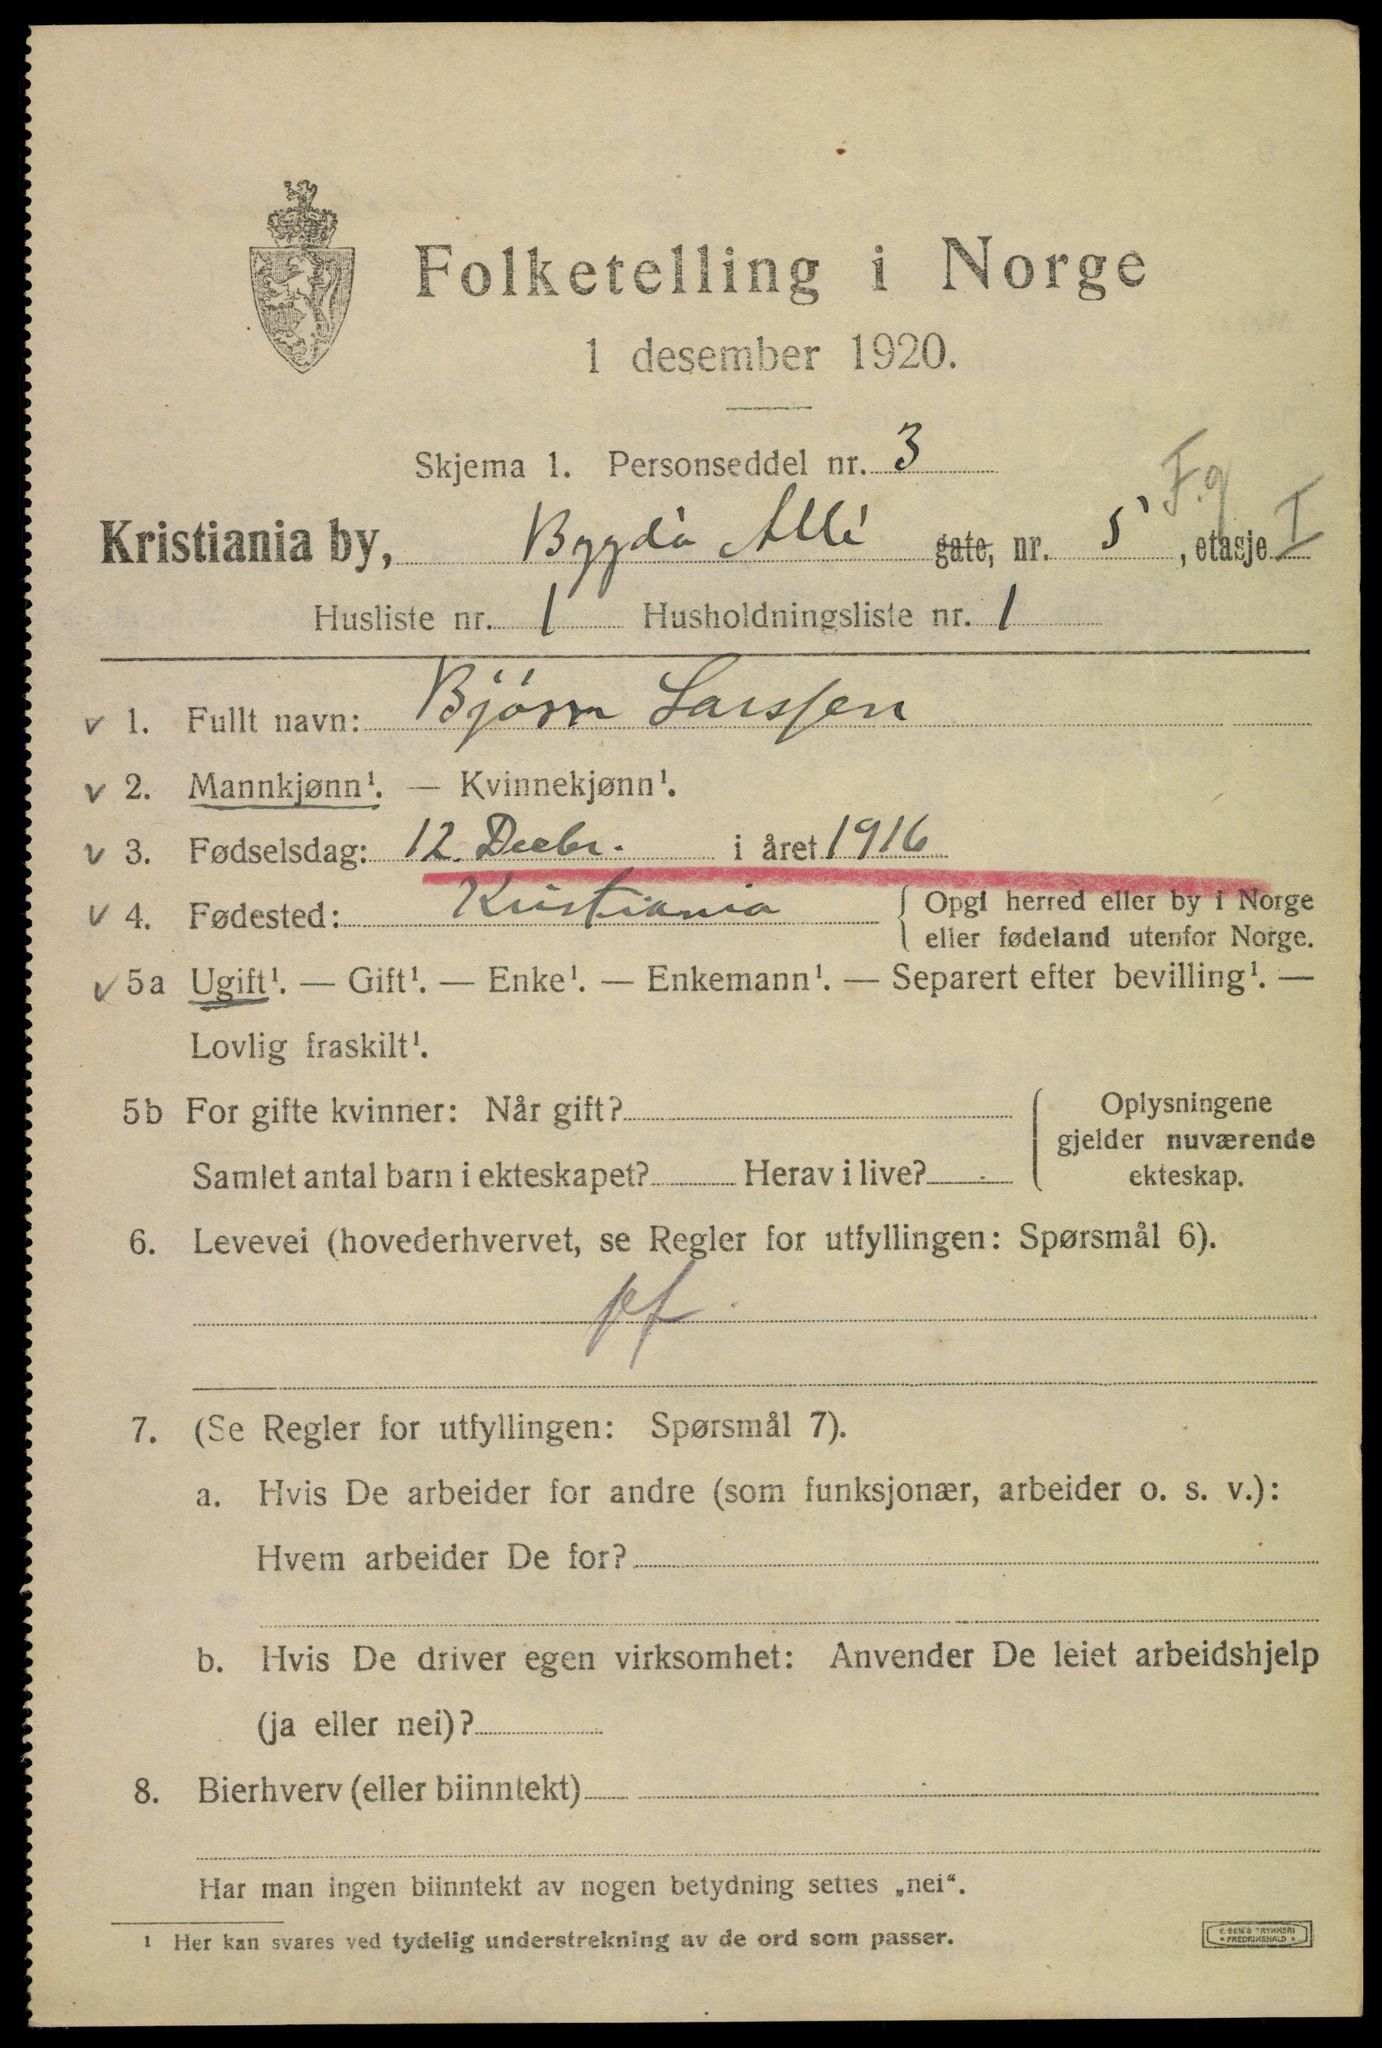 Folketelling i Norge
1 desember 1920.
Skjema 1. Personseddel nr. 3
F.g
Kristiania by, Bygdö Allé gate, nr. 5, etasje I
Husliste nr. 1 Husholdningsliste nr. 1
v 1. Fullt navn: Björn Larssen
v 2. Mannkjønn¹. — Kvinnekjønn¹.
v 3. Fødselsdag: 12. Decbr. i året 1916
v 4. Fødested: Kristiania { Opgi herred eller by i Norge
eller fødeland utenfor Norge.
v 5a Ugift¹. — Gift¹. — Enke¹. — Enkemann¹. — Separert efter bevilling¹. —
Lovlig fraskilt¹.
5b For gifte kvinner: Når gift? { Oplysningene
gjelder nuværende
Samlet antal barn i ekteskapet? Herav i live? ekteskap.
6. Levevei (hovederhvervet, se Regler for utfyllingen: Spørsmål 6).
pf.
7. (Se Regler for utfyllingen: Spørsmål 7).
a. Hvis De arbeider for andre (som funksjonær, arbeider o. s. v.):
Hvem arbeider De for?
b. Hvis De driver egen virksomhet: Anvender De leiet arbeidshjelp
(ja eller nei)?
8. Bierhverv (eller biinntekt)
Har man ingen biinntekt av nogen betydning settes „nei“.
¹ Her kan svares ved tydelig understrekning av de ord som passer.
TRYKKERI
* FREDRIKSHALD *